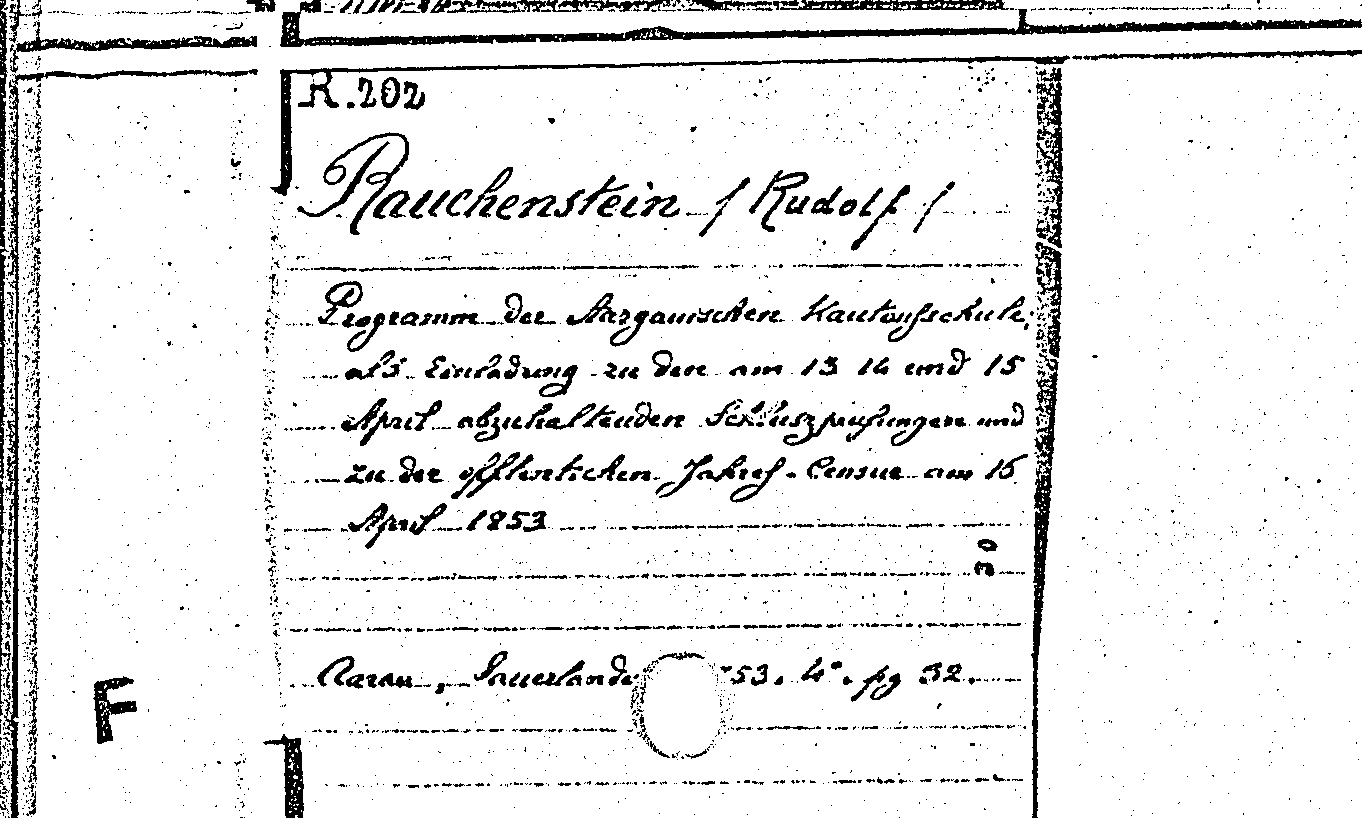 R.202
Rauchenstein / Rudolf /
Programm der Aargauischen Kantonsschule,
als Einladung zu den am 13 14 und 15
April abzuhaltenden Schluszprufungen und
zu der offentlichen Jahres-Censur am 16
April 1853
30
Aarau, Sauerlande 53. 4°. pg 32.
F